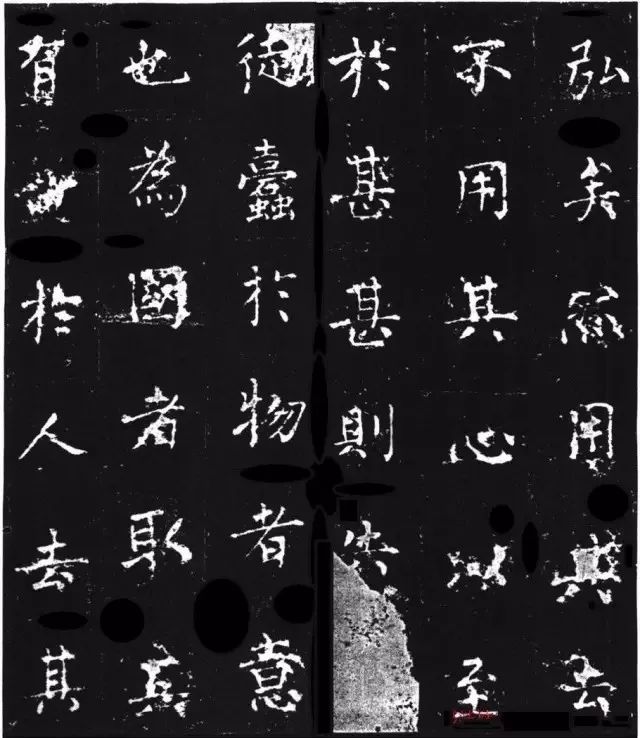 弘矣然用其去
不用其心以至
於甚甚則失
徒蠹於物者意
也為國者取其
有益於人去其